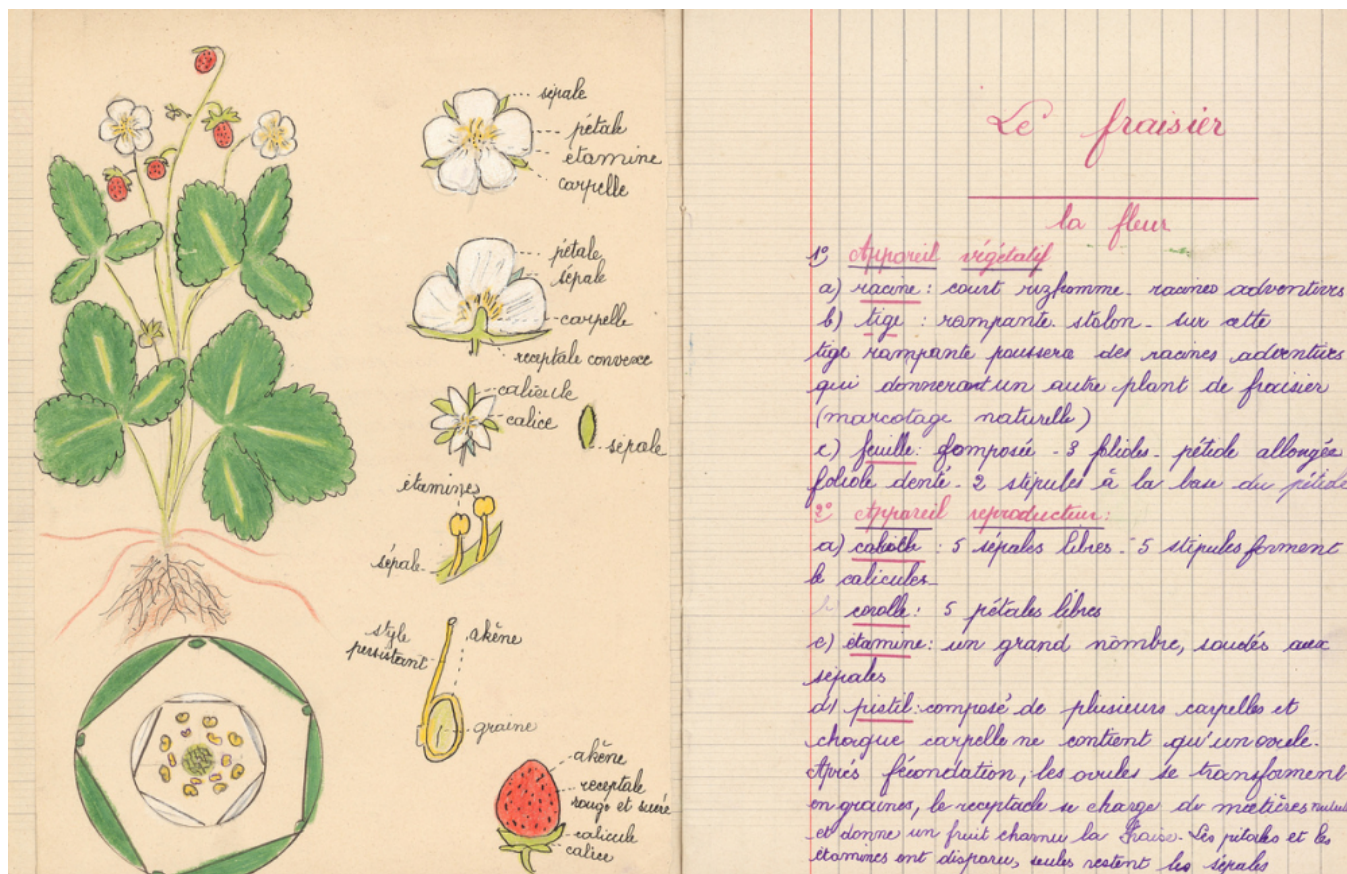 sépale
pétale
étamine
carpelle
pétale
sépale
carpelle
receptale convexe
calicule
calice
sépale
étamines
sépale
style
persistant
akène
graine
akène
receptale
rouge et sucré
calicule
calice
Le fraisier
la fleur
1º Appareil végétatif
a) racine : court rizhomme - racines adventives
b) tige : rampante. stolon - sur cette
tige rampante poussera des racines adventives
qui donneront un autre plant de fraisier
(marcotage naturelle)
c) feuille : composée - 3 folioles - pétiole allongée
foliole denté - 2 stipules à la base du pétiole
2º Appareil reproducteur :
a) : 5 sépales libres - 5 stipules forment
le calicules
b corolle : 5 pétales libres
c) étamine : un grand nombre, soudés aux
sépales
d) pistil : composé de plusieurs carpelles et
chaque carpelle ne contient qu'un ovule.
Après fécondation, les ovules se transforment
en graines, le receptacle se charge de matières
et donne un fruit charnu la fraise - Les pétales et les
étamines ont disparu, seules restent les sépales